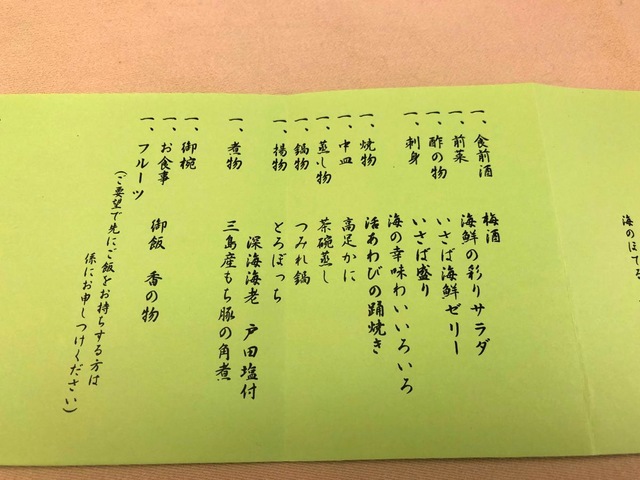 海のほてる
一、食前酒　梅酒
一、前菜　海鮮の彩りサラダ
一、酢の物　いさば海鮮ゼリー
一、刺身　いさば盛り
海の幸味わいいろいろ
一、焼物　活あわびの踊焼き
一、中皿　高足かに
一、蒸し物　茶碗蒸し
一、鍋物　つみれ鍋
一、揚物　とろぼっち
深海海老　戸田塩付
一、煮物　三島産もち豚の角煮
一、御椀
一、お食事　御飯　香の物
一、フルーツ
(ご要望で先にご飯をお持ちする方は
係にお申しつけください)